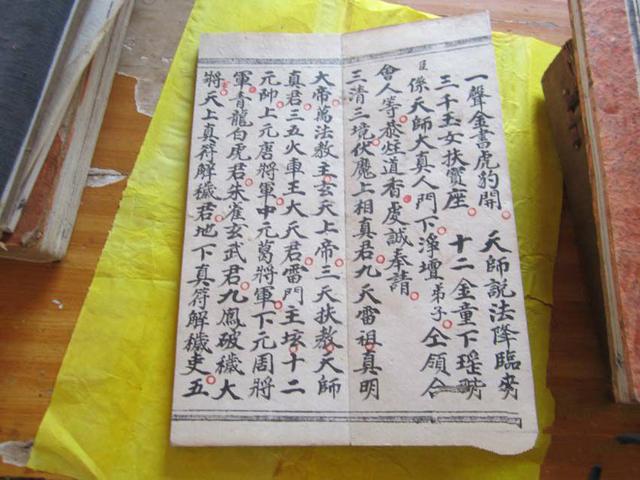 一聲金書虎豹開 天師說法降臨來
三千玉女扶寶座 十二金童下瑤階
臣係天師大真人門下淨壇弟子仝領合
會人等發炷道香虔誠奉請
三清三境伏魔上相真君九天雷祖真明
大帝萬法教主玄天上帝三天扶教天師
真君三五火車王大天君雷門主坛十二
元帥上元唐將軍中元葛將軍下元周將
軍青龍白虎君朱雀玄武君九鳳破穢大
將天上真符解穢君地下真符解穢吏五